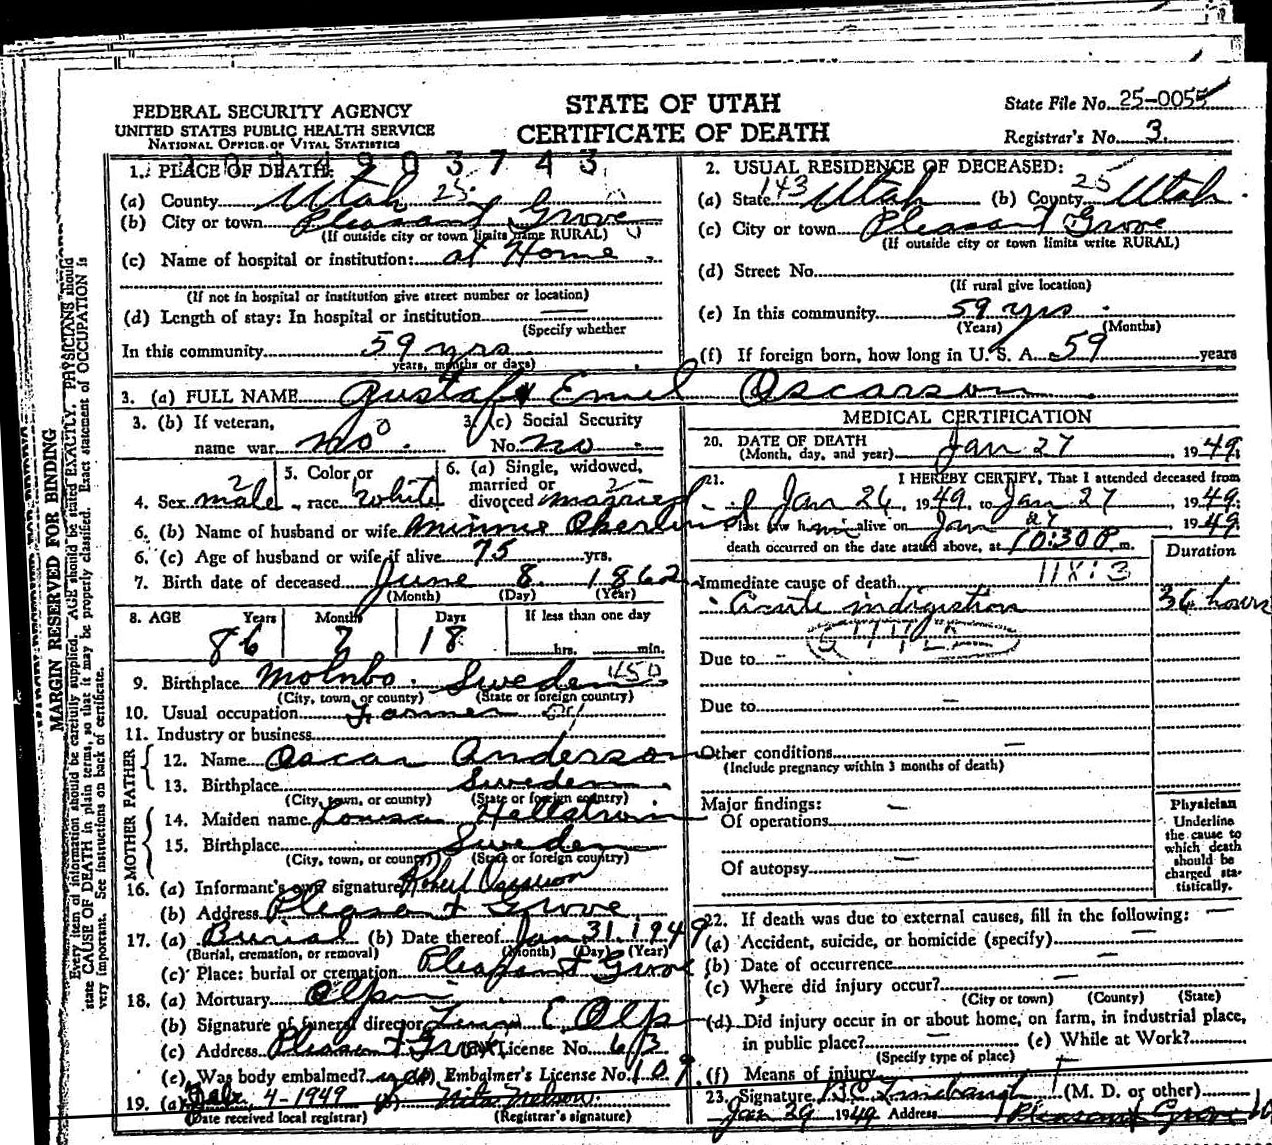 FEDERAL SECURITY AGENCY
UNITED STATES PUBLIC HEALTH SERVICE
NATIONAL OFFICE OF VITAL STATISTICS
STATE OF UTAH
CERTIFICATE OF DEATH
State File No. 25-0055
Registrar's No. 3.
MARGIN RESERVED FOR BINDING
Every item of information should be carefully supplied. AGE should be stated EXACTLY. PHYSICIANS should
state CAUSE OF DEATH in plain terms, so that it may be properly classified. Exact statement of OCCUPATION is
very important. See instructions on back of certificate.
1. PLACE OF DEATH:
4903743
(a) County Utah 25
(b) City or town Pleasant Grove
(If outside city or town limits name RURAL)
(c) Name of hospital or institution: at Home
(If not in hospital or institution give street number or location)
(d) Length of stay: In hospital or institution —
(Specify whether
In this community 59 yrs
years, months or days)
2. USUAL RESIDENCE OF DECEASED:
(a) State 143 Utah (b) County 25 Utah
(c) City or town Pleasant Grove
(If outside city or town limits write RURAL)
(d) Street No.
(If rural give location)
(e) In this community 59 yrs
(Years) (Months)
(f) If foreign born, how long in U. S. A. 59 years
3. (a) FULL NAME Gustaf Emil Oscarson
3. (b) If veteran,
name war no
3. (c) Social Security
No. no
4. Sex male
5. Color or
race white
6. (a) Single, widowed,
married or
divorced married
6. (b) Name of husband or wife Minnie
6. (c) Age of husband or wife if alive 75 yrs.
7. Birth date of deceased June 8 1862
(Month) (Day) (Year)
8. AGE Years Months Days If less than one day
86 7 18 hrs. min.
9. Birthplace Molnbo. Sweden 450
(City, town, or county) (State or foreign country)
10. Usual occupation Farmer
11. Industry or business
FATHER
12. Name Oscar Anderson
13. Birthplace Sweden
(City, town, or county) (State or foreign country)
MOTHER
14. Maiden name Louisa
15. Birthplace Sweden
(City, town, or county) (State or foreign country)
16. (a) Informant's own signature Robert Oscarson
(b) Address Pleasant Grove
17. (a) Burial (b) Date thereof Jan 31. 1949
(Burial, cremation, or removal) (Month) (Day) (Year)
(c) Place: burial or cremation Pleasant Grove
18. (a) Mortuary
(b) Signature of funeral director E. Olp
(c) Address Pleasant Grove License No. 613
(e) Was body embalmed? yes Embalmer's License No. 109
19. (a) Feb. 4-1949 (b) Nita Nelson
(Date received local registrar) (Registrar's signature)
MEDICAL CERTIFICATION
20. DATE OF DEATH
(Month, day, and year) Jan 27, 1949.
21. I HEREBY CERTIFY, That I attended deceased from
Jan 26, 1949, to Jan 27 1949.
I last saw him alive on Jan 27 1949.
death occurred on the date stated above, at 10:30 P. m.
Duration
Immediate cause of death
Acute indigestion 36 hours
Due to
Due to —
Other conditions —
(Include pregnancy within 3 months of death)
Major findings:
Of operations —
Of autopsy —
Physician
Underline
the cause to
which death
should be
charged sta-
tistically.
22. If death was due to external causes, fill in the following: —
(a) Accident, suicide, or homicide (specify) —
(b) Date of occurrence —
(c) Where did injury occur? —
(City or town) (County) (State)
(d) Did injury occur in or about home, on farm, in industrial place,
in public place? — (e) While at Work?
(Specify type of place)
(f) Means of injury
23. Signature (M. D. or other)
Jan 29 1949 Address Pleasant Grove